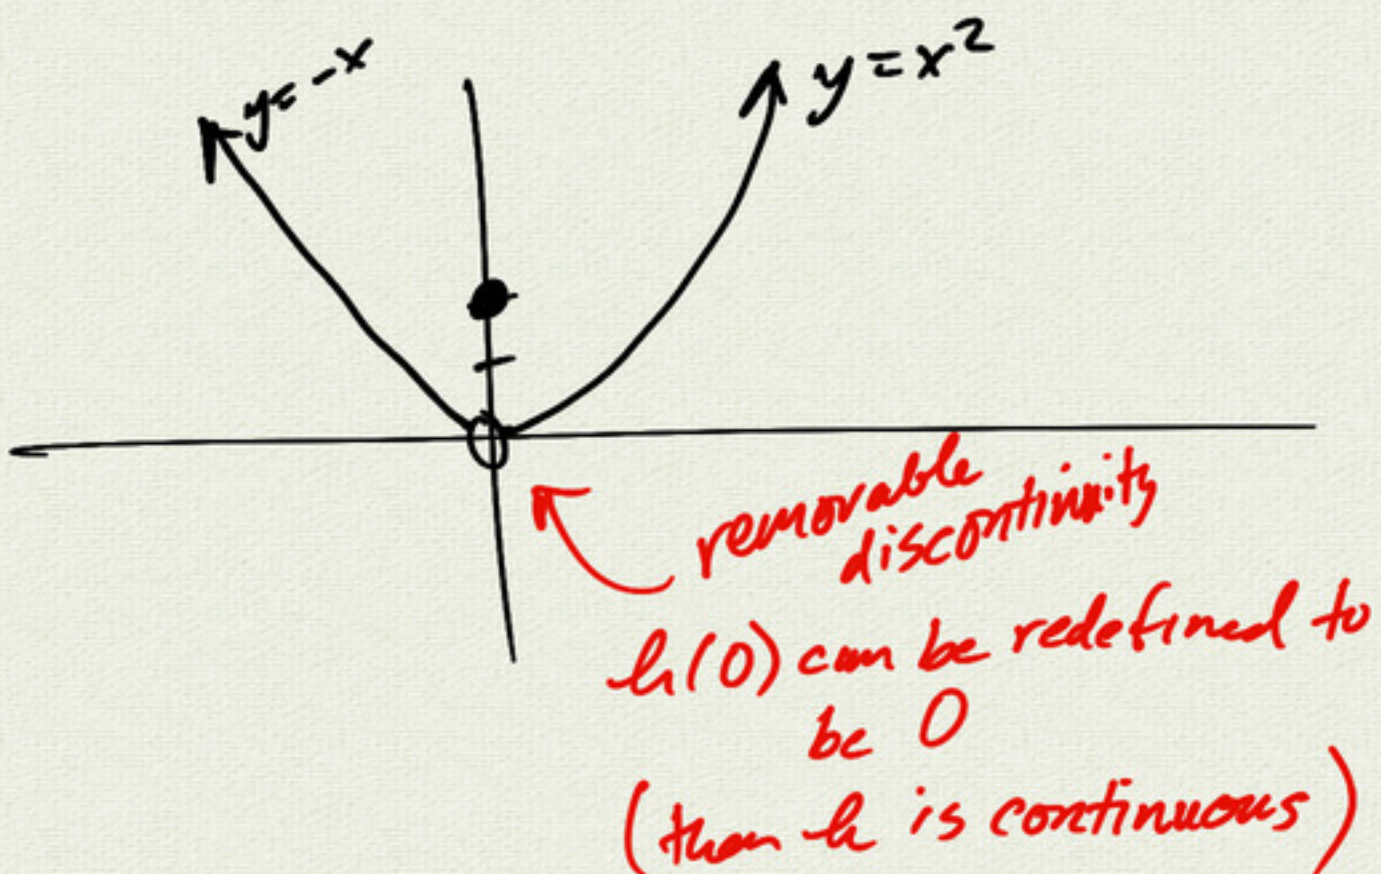 y=-x
y=x²
removable
discontinuity
h(0) can be redefined to
be 0
(then h is continuous)